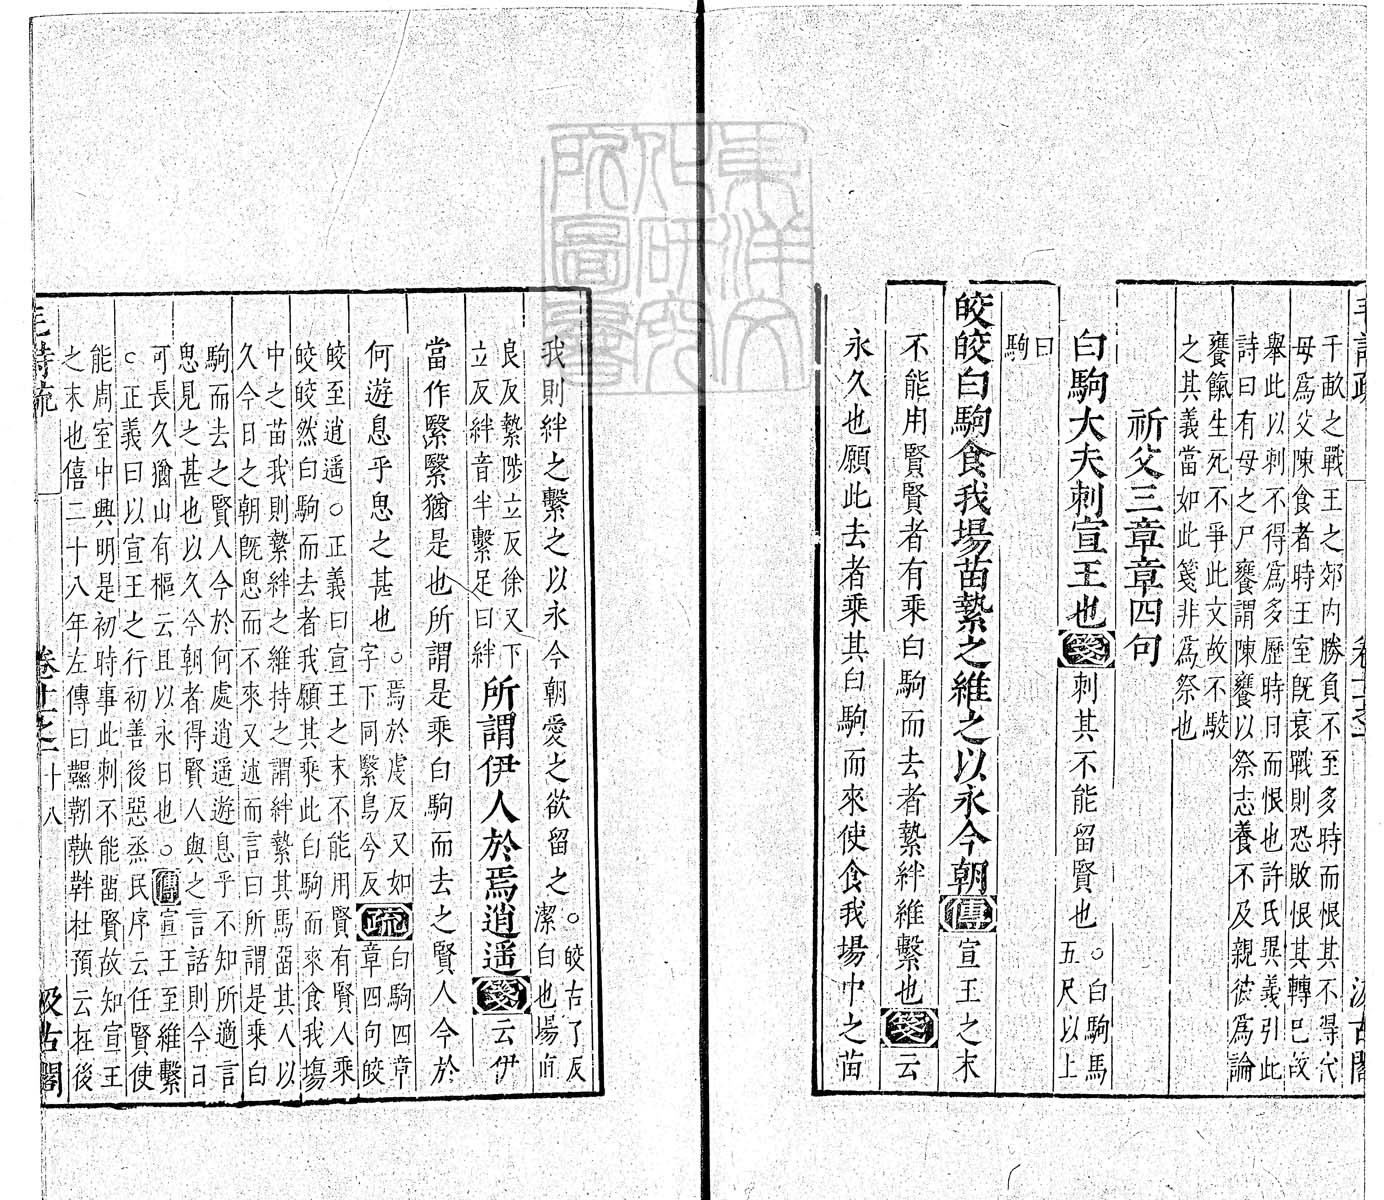 毛詩疏
卷十一之一
汲古閣
千畝之戰王之郊内勝負不至多時而恨其不得代
母爲父陳食者時王室旣衰戰則恐敗恨其轉巳故
舉此以刺不得爲多歷時日而恨也許氏異義引此
詩曰有母之尸饔謂陳饔以祭志養不及親彼爲論
饔餼生死不爭此文故不駮
之其義當如此箋非爲祭也
祈父三章章四句
白駒大夫刺宣王也箋刺其不能留賢也○白駒馬
五尺以上
曰
駒
皎皎白駒食我場苗縶之維之以永今朝傳宣王之末
不能用賢賢者有乘白駒而去者縶絆維繫也箋云
永久也願此去者乘其白駒而來使食我場中之苗
我則絆之繫之以永今朝愛之欲留之○皎古了反
潔白也場直
良反縶陟立反徐又下
立反絆音半繫足曰絆
所謂伊人於焉逍遥箋云伊
當作繄繄猶是也所謂是乘白駒而去之賢人今於
何遊息乎思之甚也○焉於虔反又如
字下同繄烏兮反
疏白駒四章
章四句皎
皎至逍遥○正義曰宣王之末不能用賢有賢人乘
皎皎然白駒而去者我願其乘此白駒而來食我塲
中之苗我則縶絆之維持之謂絆縶其馬畱其人以
久今日之朝旣思而不來又述而言曰所謂是乘白
駒而去之賢人今於何處逍遥遊息乎不知所適言
思見之甚也以久今朝者得賢人與之言話則今日
可長久猶山有樞云且以永日也○傳宣王至維繫
○正義曰以宣王之行初善後惡烝民序云任賢使
能周室中興明是初時事此刺不能畱賢故知宣王
之末也僖二十八年左傳曰韅靷鞅靽杜預云在後
毛詩疏
卷十一之一
十八
汲古閣
東洋文
化研究
所圖書